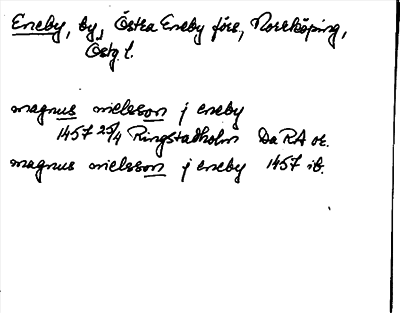 Eneby, by, Östra Eneby förs, Norrköping,
Östg. l.
magnus nielsson j eneby
1457 25/4 Ringstadholm DaRA or.
magnus nielsson j eneby 1457 ib.